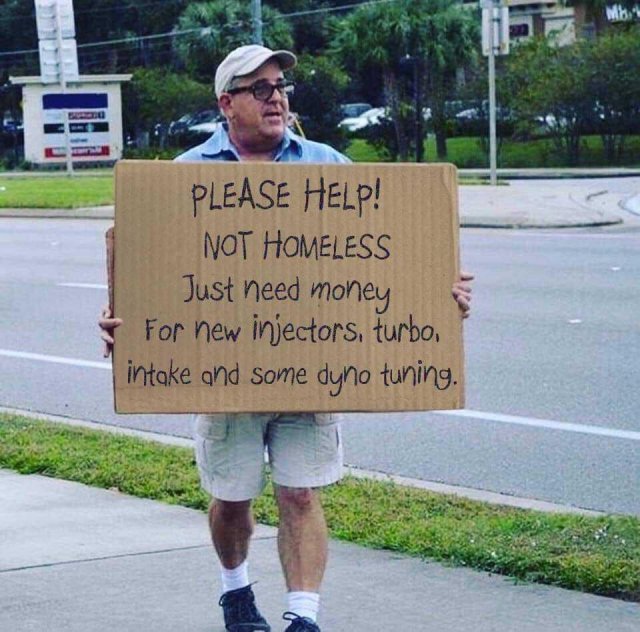 PLEASE HELP!
NOT HOMELESS
Just need money
For new injectors, turbo,
intake and some dyno tuning.